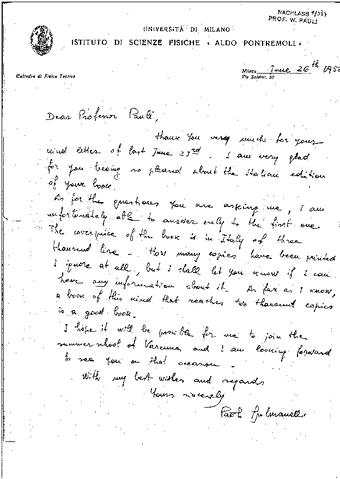 NACHLASS
PROF. W. PAULI
UNIVERSITÀ DI MILANO
ISTITUTO DI SCIENZE FISICHE « ALDO PONTREMOLI »
Cattedra di Fisica Teorica
Milano June 26th
Via Saldini, 50
Dear Professor Pauli,
thank you very much for your
kind letter of last June 23rd. I am very glad
for you being so pleased about the italian edition
of your book.
As for the questions you are asking me, I am
unfortunately able to answer only to the first one.
The coverprice of the book is in Italy of three
thousand lire. How many copies have been printed
I ignore at all, but I shall let you know if I can
have any information about it. As far as I know,
a book of this kind that reaches two thousand copies
is a good book.
I hope it will be possible for me to join the
summer school of Varenna and I am looking forward
to see you on that occasion.
With my best wishes and regards
Yours sincerely